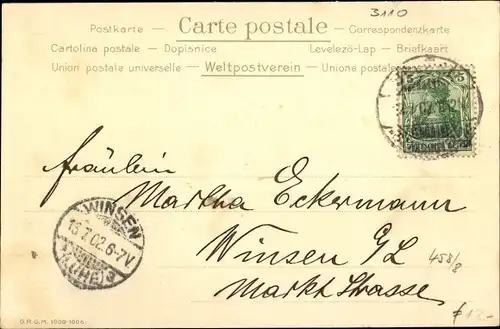 3110
Postkarte — Carte postale — Correspondenzkarte
Cartolina postale — Dopisnice Levelező-Lap — Briefkaart
Union postale universelle — Weltpostverein — Unione postale
5 5
Fräulein
Martha Eckermann
Winsen
Markt Strasse
458/8
WINSEN
13.7.02.6-7V
(LUHE)
D.R.G.M.